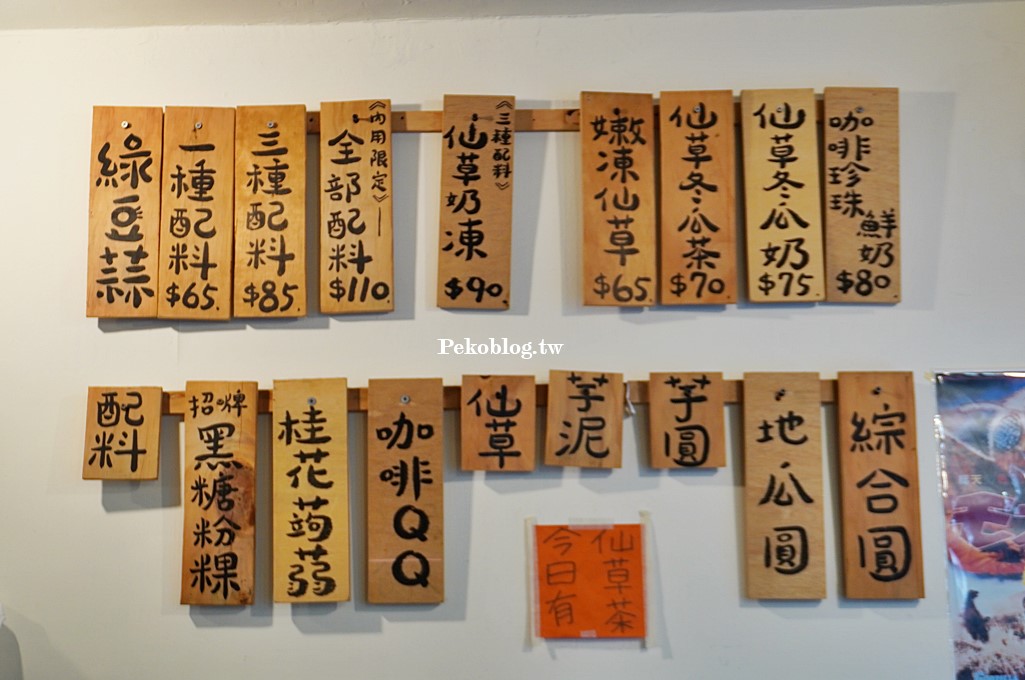 綠豆蒜
一種配料 $65.
三種配料 $85.
《內用限定》
全部配料 $110
《三種配料》
仙草奶凍 $90.
嫩凍仙草 $65.
仙草冬瓜茶 $70
仙草冬瓜奶 $75
咖啡珍珠鮮奶 $80
Pekoblog.tw
配料
招牌
黑糖粉粿
桂花蒟蒻
咖啡QQ
仙草
芋泥
芋圓
地瓜圓
綜合圓
今日有
仙草茶